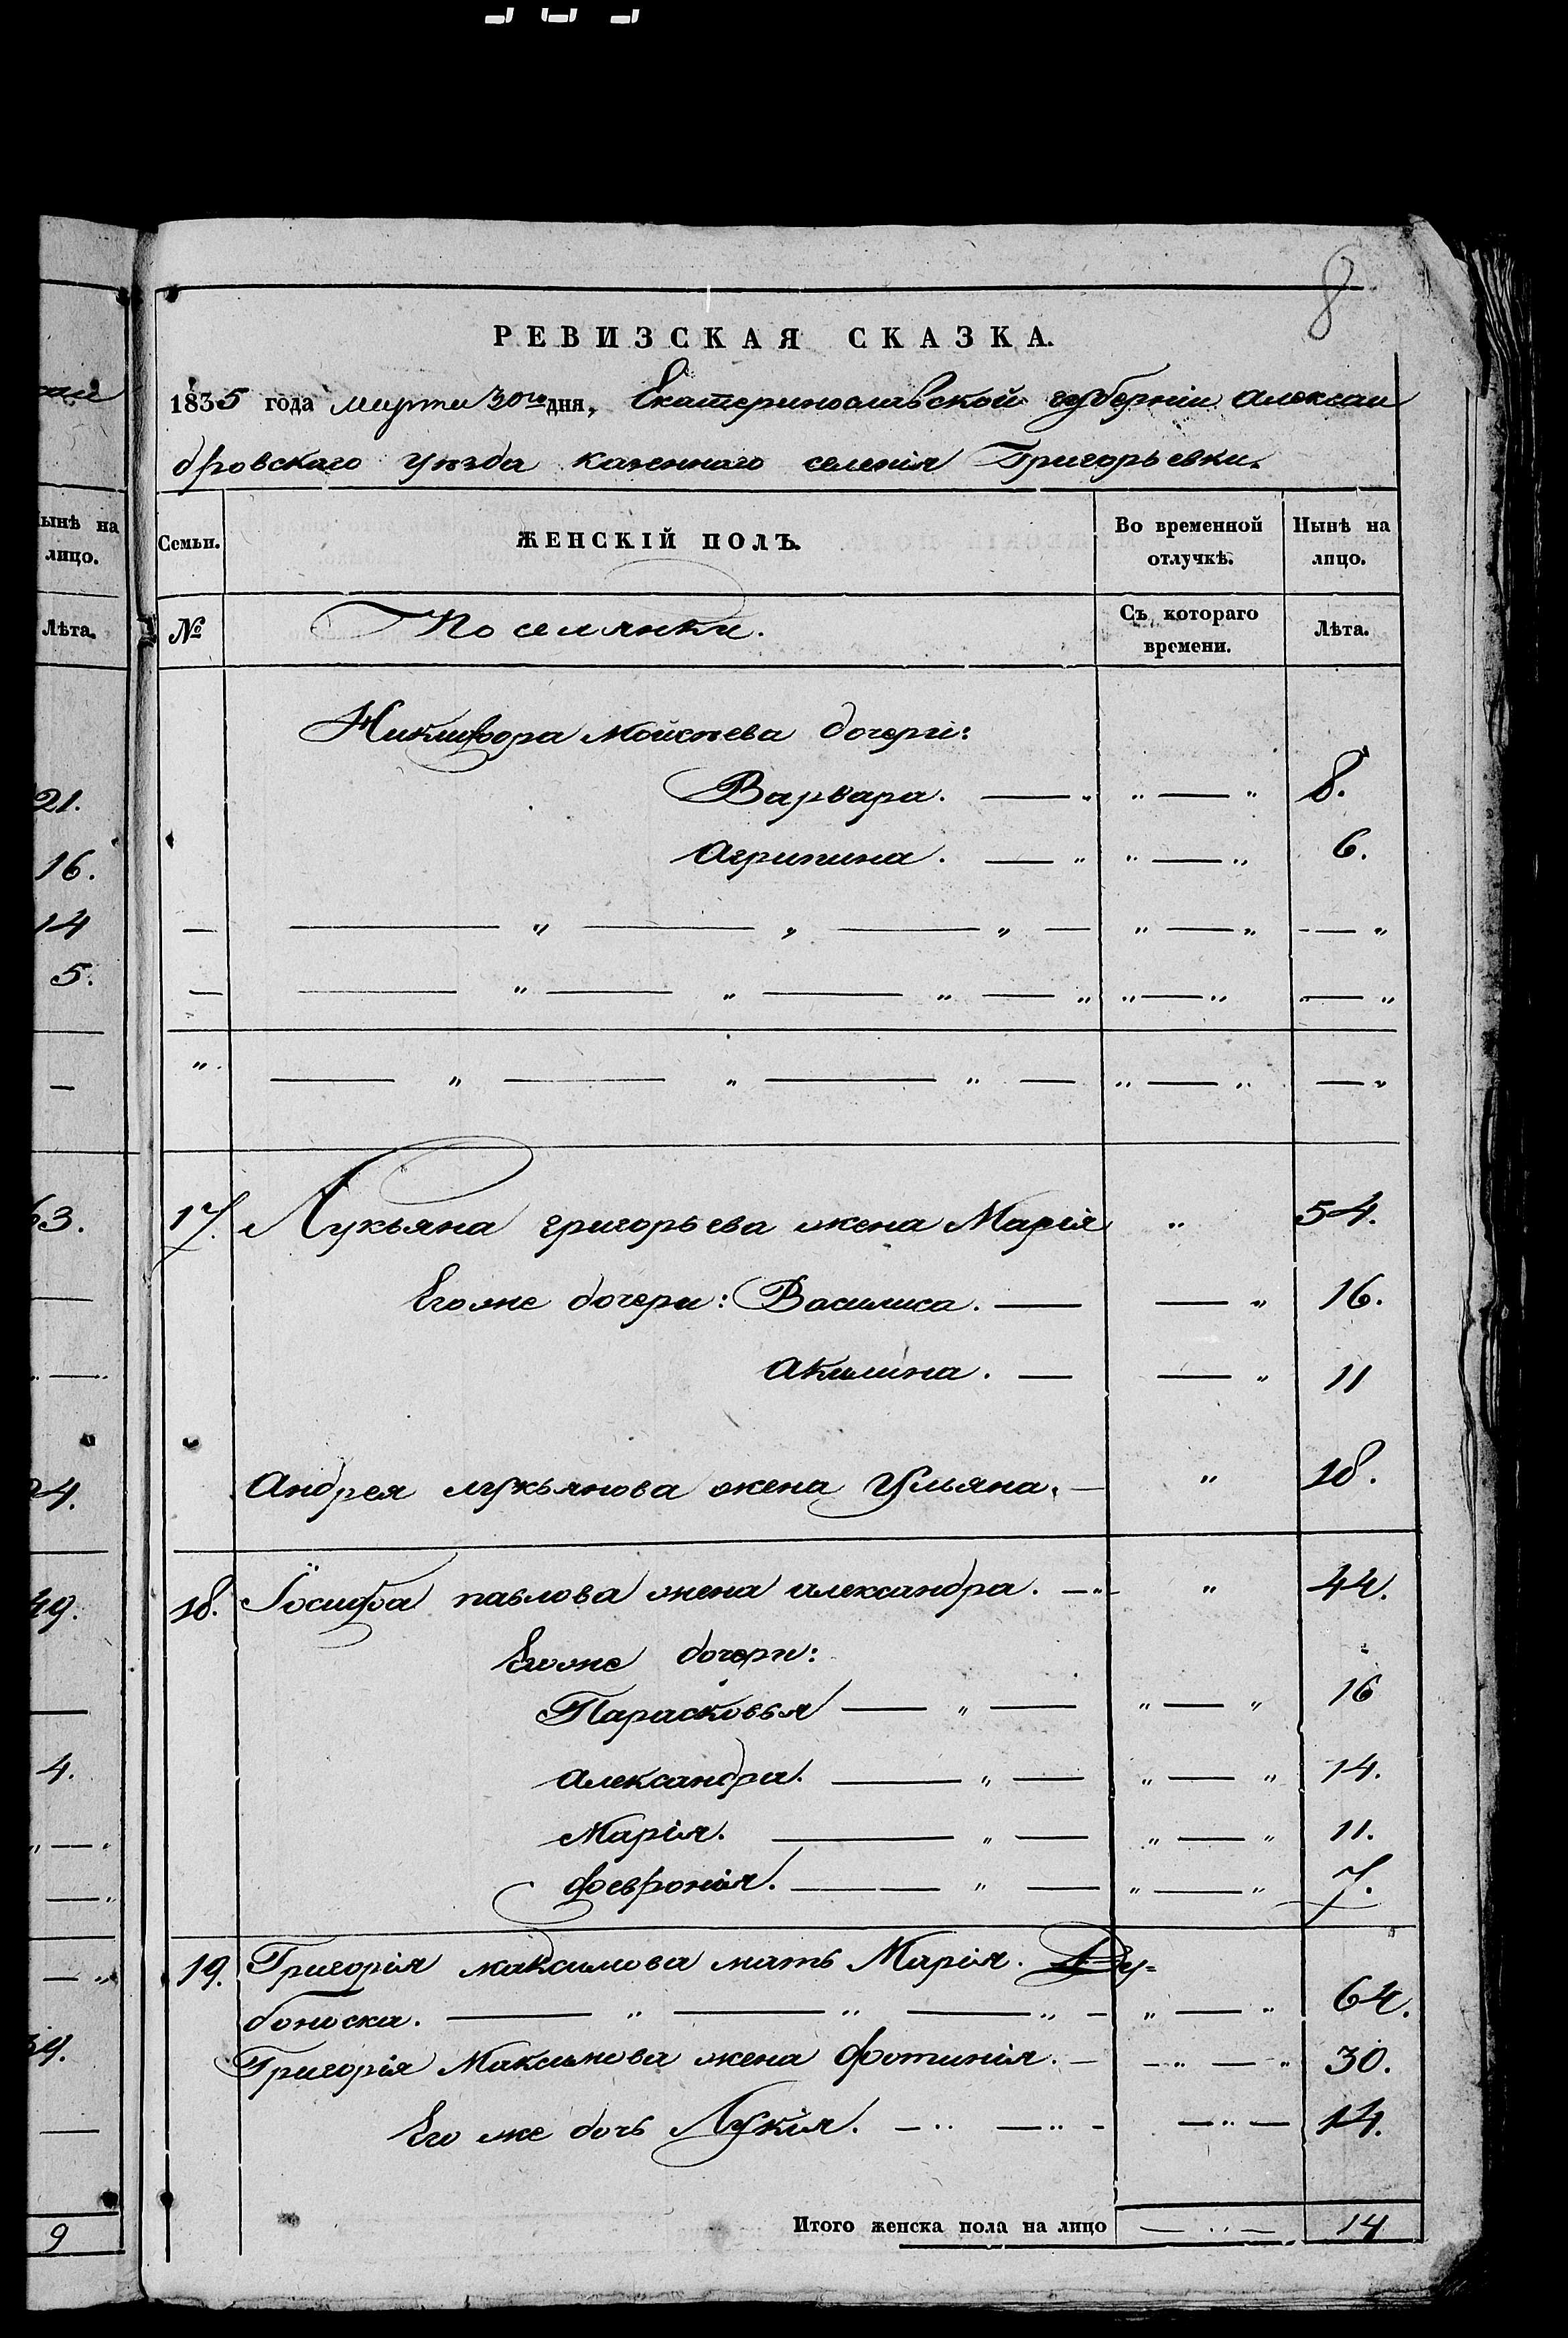 8
РЕВИЗСКАЯ СКАЗКА.
1835 года марта 30го дня, Екатеринославской губернiи Алексан
дровскаго уѣзда казеннаго селенiя Григорьевки.
Семьи. ЖЕНСКIЙ ПОЛЪ. Во временной отлучкѣ. Нынѣ на лицо.
№ Поселянки. Съ котораго времени. Лѣта.
Никифора Моисѣева дочери:
Варвара. — „ „ — „ 8.
Агрипина. — „ „ — „ 6.
— — „ — „ — „ — „ — „ — „
— — „ — „ — „ — „ „ — „ „ — „
„ — „ — „ — „ — „ — „ — „
17. Лукьяна григорьева жена Марiя „ 54.
Егоже дочери: Василиса. — — „ 16.
Акилина. — — „ 11
Андрея лукьянова жена Ульяна. — „ 18.
18. Iосифа павлова жена александра. — „ „ 44.
Егоже дочери:
Парасковья — „ — „ — „ 16
Александра. — „ — „ — „ 14.
Марiя. — „ — „ — „ 11.
Феврониiя. — „ — „ — „ 7.
19. Григорiя максимова мать Марiя. Ду=
боноска. — „ — „ — „ — „ — „ 64.
Григорiя Максимова жена Фотинiя. — — „ — „ 30.
Его же дочь Лукiя. — „ — „ — — „ — 14.
Итого женска пола на лицо — „ — 14
ынѣ на
лицо.
Лѣта.
21.
16.
14
5.
—
63.
24.
49.
4.
39.
9